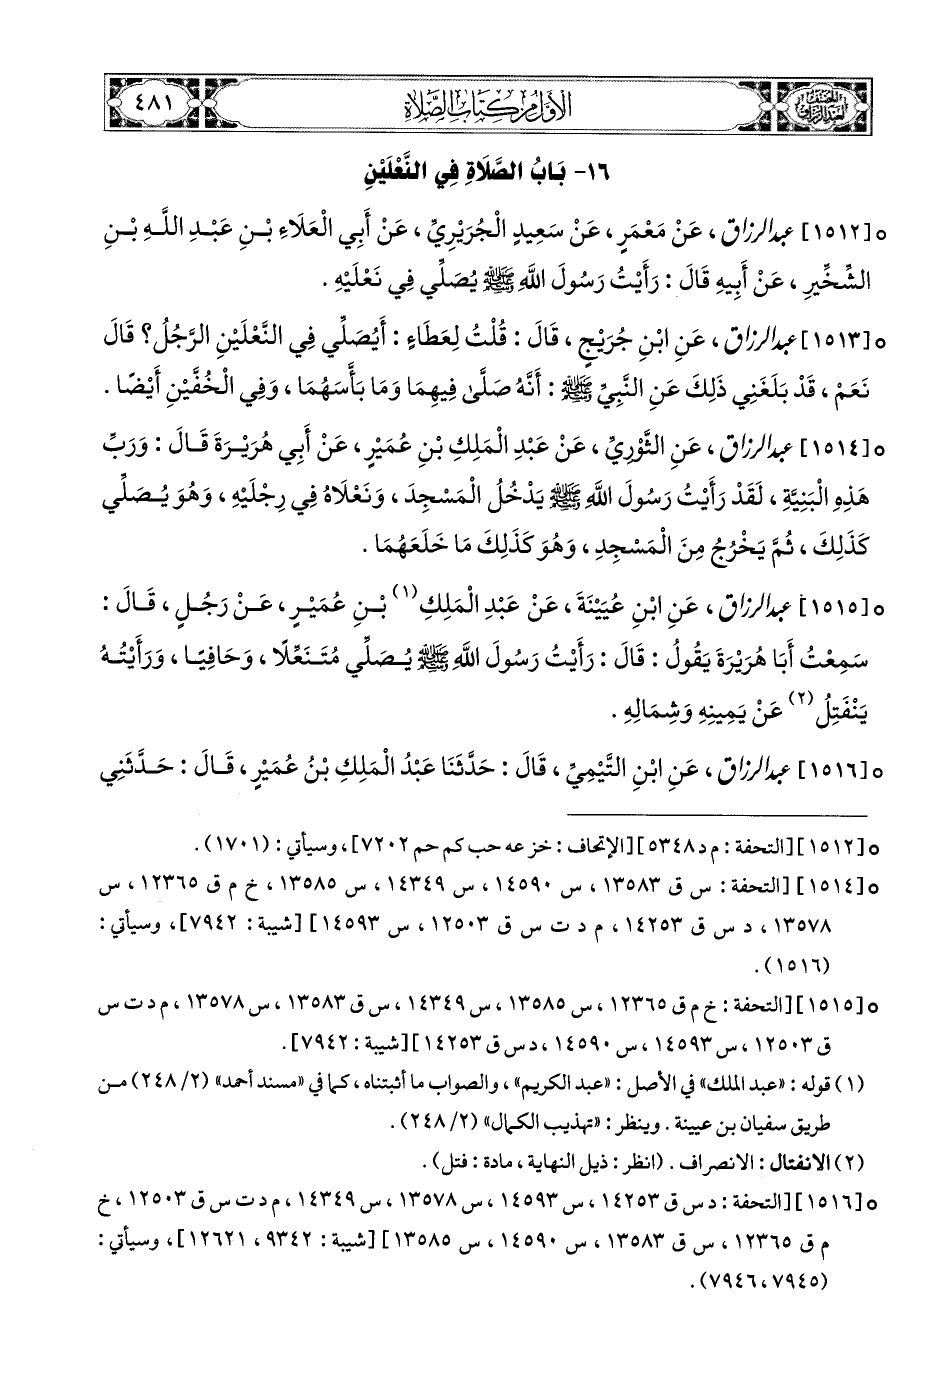 المصنف للإمام عبد الرزاق
الأول من كتاب الصلاة
٤٨١
١٦- بَابُ الصَّلَاةِ فِي النَّعْلَيْنِ
٥ [١٥١٢] عبد الرزاق، عَنْ مَعْمَرٍ، عَنْ سَعِيدٍ الْجُرَيْرِيِّ، عَنْ أَبِي الْعَلَاءِ بْنِ عَبْدِ اللَّهِ بْنِ
الشِّخِّيرِ، عَنْ أَبِيهِ قَالَ: رَأَيْتُ رَسُولَ اللَّهِ ﷺ يُصَلِّي فِي نَعْلَيْهِ.
٥ [١٥١٣] عبد الرزاق، عَنِ ابْنِ جُرَيْجٍ، قَالَ: قُلْتُ لِعَطَاءٍ: أَيُصَلِّي فِي النَّعْلَيْنِ الرَّجُلُ؟ قَالَ
نَعَمْ، قَدْ بَلَغَنِي ذَلِكَ عَنِ النَّبِيِّ ﷺ: أَنَّهُ صَلَّى فِيهِمَا وَمَا بَأْسَهُمَا، وَفِي الْخُفَّيْنِ أَيْضًا.
٥ [١٥١٤] عبد الرزاق، عَنِ الثَّوْرِيِّ، عَنْ عَبْدِ الْمَلِكِ بْنِ عُمَيْرٍ، عَنْ أَبِي هُرَيْرَةَ قَالَ: وَرَبِّ
هَذِهِ الْبَنِيَّةِ، لَقَدْ رَأَيْتُ رَسُولَ اللَّهِ ﷺ يَدْخُلُ الْمَسْجِدَ، وَنَعْلَاهُ فِي رِجْلَيْهِ، وَهُوَ يُصَلِّي
كَذَلِكَ، ثُمَّ يَخْرُجُ مِنَ الْمَسْجِدِ، وَهُوَ كَذَلِكَ مَا خَلَعَهُمَا.
٥ [١٥١٥] عبد الرزاق، عَنِ ابْنِ عُيَيْنَةَ، عَنْ عَبْدِ الْمَلِكِ (١) بْنِ عُمَيْرٍ، عَنْ رَجُلٍ، قَالَ:
سَمِعْتُ أَبَا هُرَيْرَةَ يَقُولُ: قَالَ: رَأَيْتُ رَسُولَ اللَّهِ ﷺ يُصَلِّي مُتَنَعِّلًا، وَحَافِيًا، وَرَأَيْتُهُ
يَنْفَتِلُ (٢) عَنْ يَمِينِهِ وَشِمَالِهِ.
٥ [١٥١٦] عبد الرزاق، عَنِ ابْنِ التَّيْمِيِّ، قَالَ: حَدَّثَنَا عَبْدُ الْمَلِكِ بْنُ عُمَيْرٍ، قَالَ: حَدَّثَنِي
٥ [١٥١٢] [التحفة: م د ٥٣٤٨] [الإتحاف: خز عه حب كم حم ٧٢٠٢]، وسيأتي: (١٧٠١).
٥ [١٥١٤] [التحفة: س ق ١٣٥٨٣، س ١٤٥٩٠، س ١٤٣٤٩، س ١٣٥٨٥، خ م ق ١٢٣٦٥، س
١٣٥٧٨، د س ق ١٤٢٥٣، م د ت س ق ١٢٥٠٣، س ١٤٥٩٣] [شيبة: ٧٩٤٢]، وسيأتي:
(١٥١٦).
٥ [١٥١٥] [التحفة: خ م ق ١٢٣٦٥، س ١٣٥٨٥، س ١٤٣٤٩، س ق ١٣٥٨٣، س ١٣٥٧٨، م د ت س
ق ١٢٥٠٣، س ١٤٥٩٣، س ١٤٥٩٠، د س ق ١٤٢٥٣] [شيبة: ٧٩٤٢].
(١) قوله: «عبد الملك» في الأصل: «عبد الكريم»، والصواب ما أثبتناه، كما في «مسند أحمد» (٢/٢٤٨) من
طريق سفيان بن عيينة. وينظر: «تهذيب الكمال» (٢/٢٤٨).
(٢) الانفتال: الانصراف. (انظر: ذيل النهاية، مادة: فتل).
٥ [١٥١٦] [التحفة: د س ق ١٤٢٥٣، س ١٤٥٩٣، س ١٣٥٧٨، س ١٤٣٤٩، م د ت س ق ١٢٥٠٣، خ
م ق ١٢٣٦٥، س ق ١٣٥٨٣، س ١٤٥٩٠، س ١٣٥٨٥] [شيبة: ٩٣٤٢، ١٢٦٢١]، وسيأتي:
(٧٩٤٥، ٧٩٤٦).